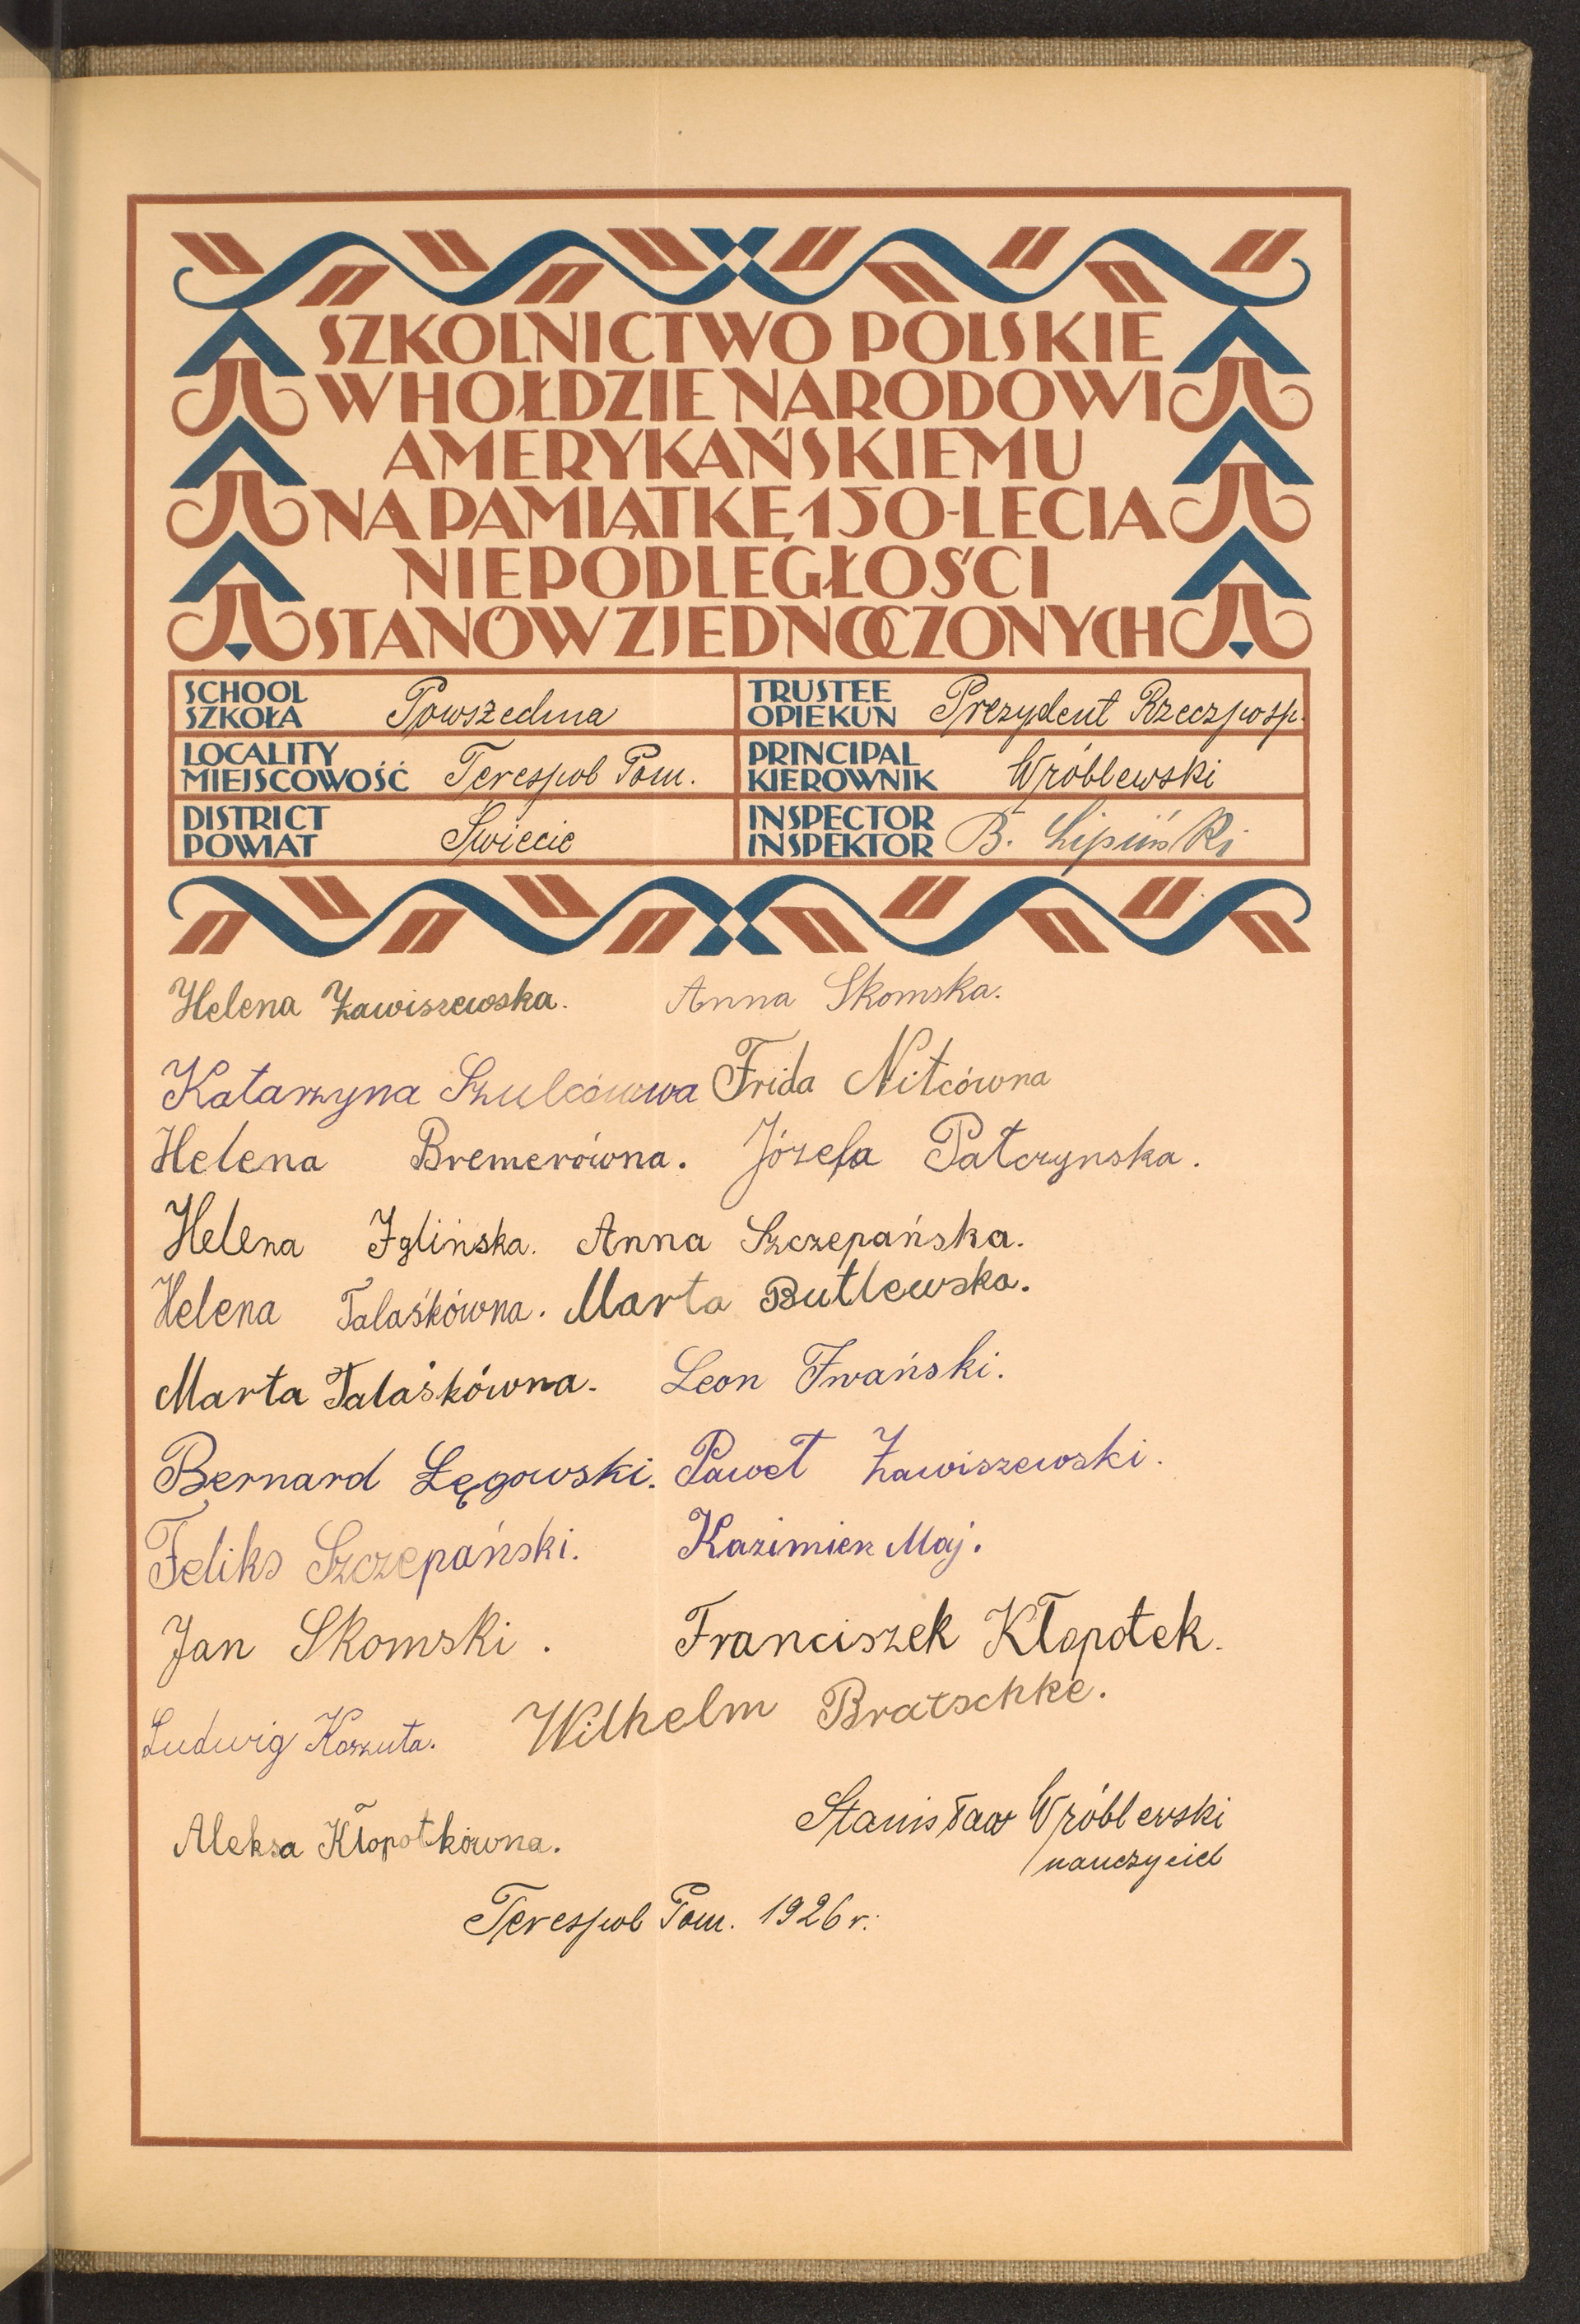 SZKOLNICTWO POLSKIE
W HOŁDZIE NARODOWI
AMERYKAŃSKIEMU
NA PAMIĄTKĘ 150-LECIA
NIEPODLEGŁOŚCI
STANÓW ZJEDNOCZONYCH
SCHOOL
SZKOŁA Powszechna
TRUSTEE
OPIEKUN Prezydent Rzeczposp.
LOCALITY
MIEJSCOWOŚĆ Terespol Pom.
PRINCIPAL
KIEROWNIK Wróblewski
DISTRICT
POWIAT Świecie
INSPECTOR
INSPEKTOR B. Lipiński
Helena Zawiszewska. Anna Skomska.
Katarzyna Szulcówna Frida Nitcówna
Helena Bremerówna. Józefa Patczynska.
Helena Iglińska. Anna Szczepańska.
Helena Talaśkówna. Marta Butlewska.
Marta Talaśkówna. Leon Iwański.
Bernard Łęgowski. Paweł Zawiszewski.
Feliks Szczepański. Kazimierz Maj.
Jan Skomski. Franciszek Kłopotek.
Ludwig Koszuta. Wilhelm Bratschke.
Aleksa Kłopotkówna. Stanisław Wróblewski
nauczyciel
Terespol Pom. 1926 r.